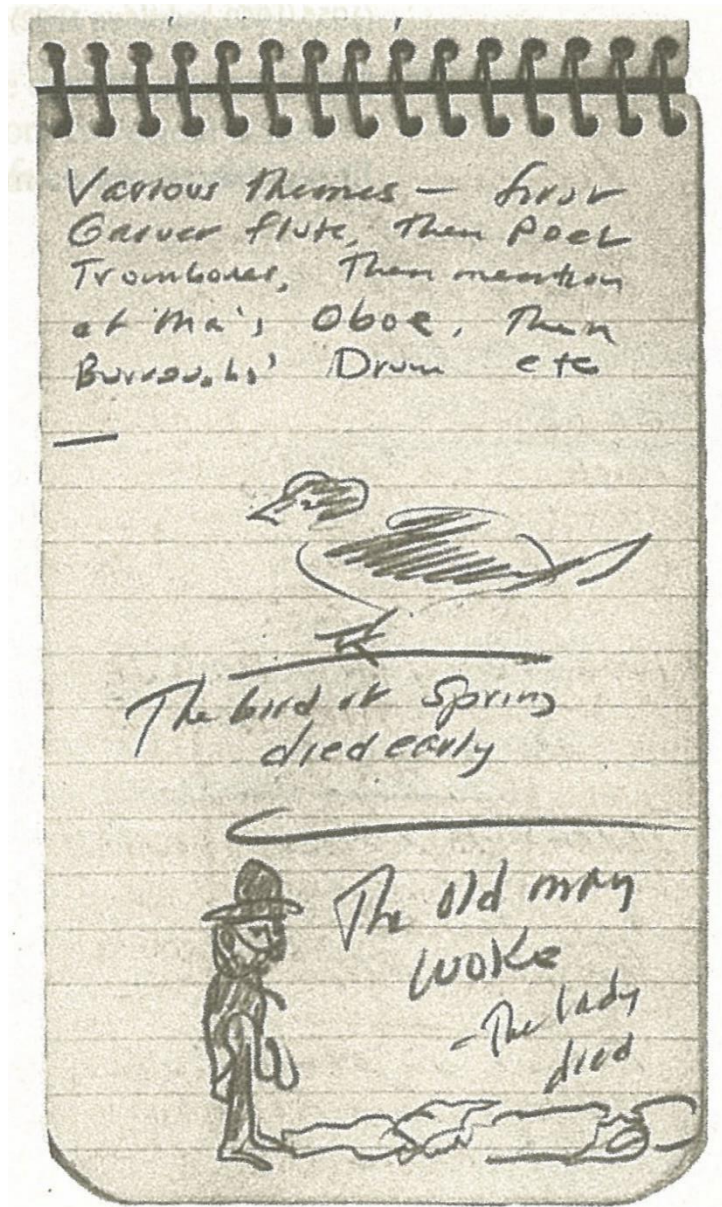 Various themes — first
Garver flute, then Poet
Trombones, Then mention
of Ma's Oboe, Then
Burroughs' Drum etc
—
The bird of Spring
died early
The old man
woke
- The lady
died